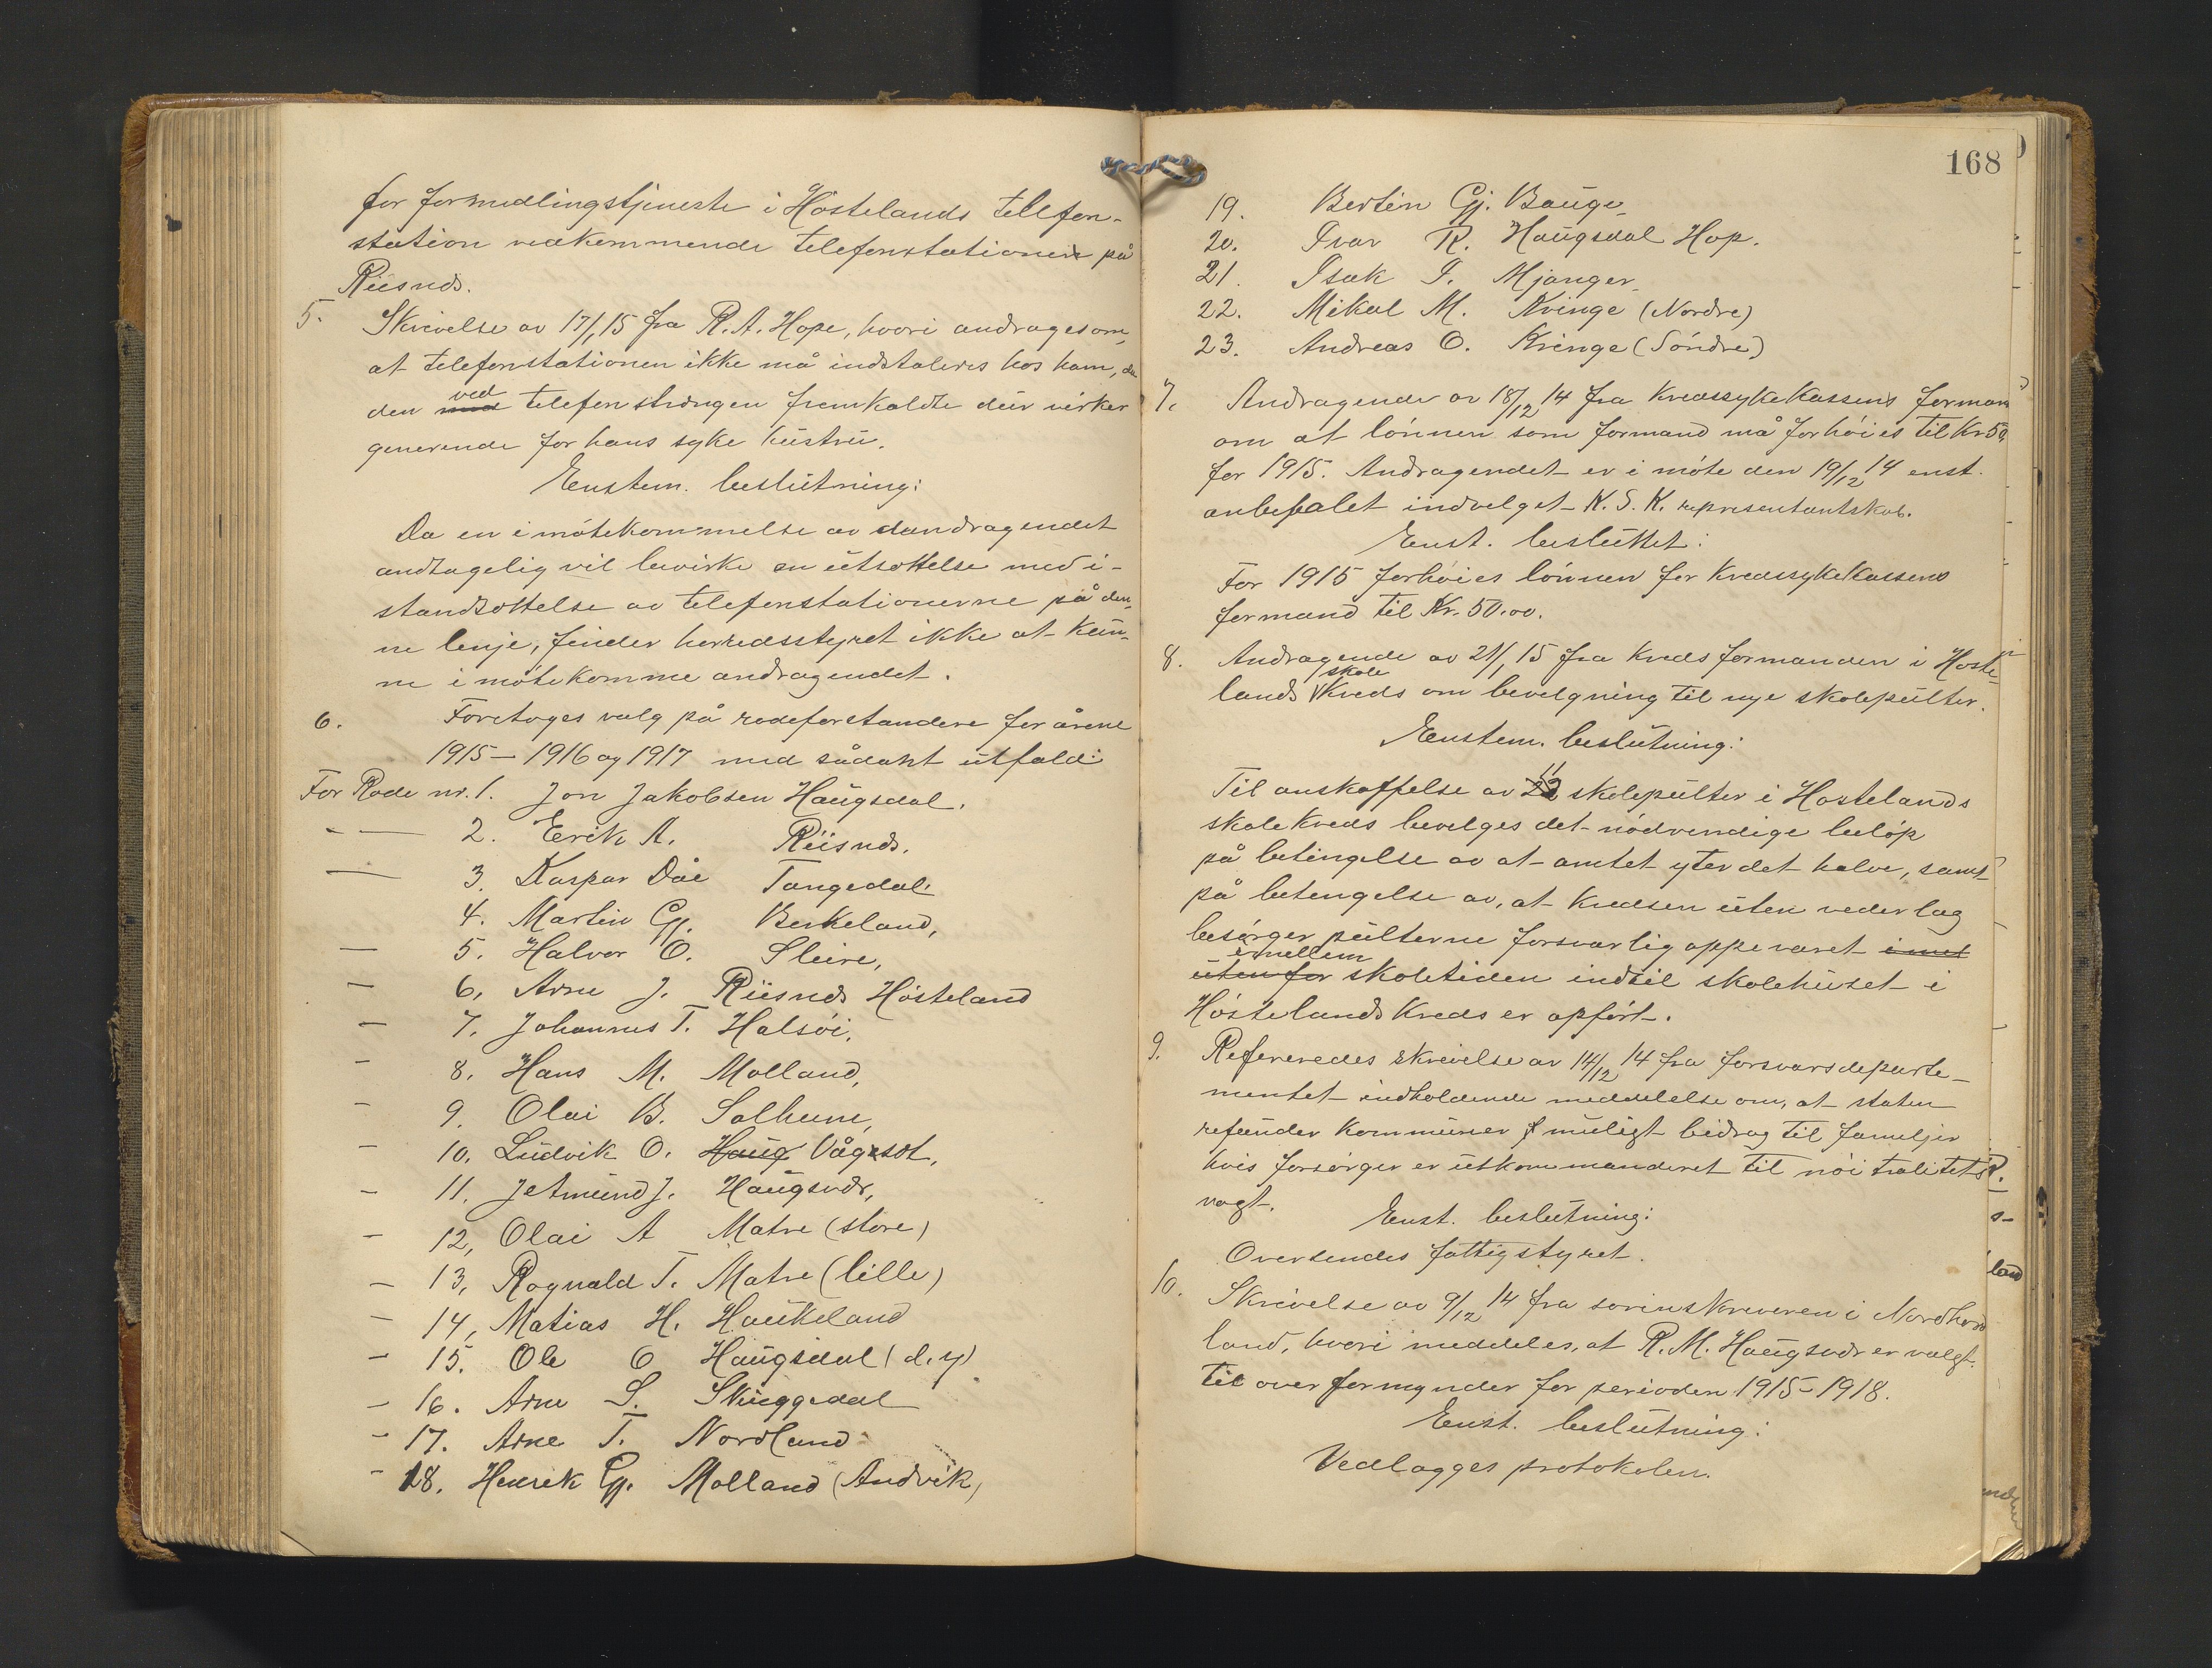 for formedlingstjeneste i Hostelands telefon-
station vedkommende telefonstationen på
Riisnes.
5. Skrivelse av 17/1 15 fra R. A. Hope, hvori andrages om,
at telefonstationen ikke må indstaleres hos ham, da
ved
den med telefonstrøngen fremkaldte dur virker
generende for hans syke hustru.
Enstem. beslutning:
Da en imøtekommelse av andragendet
andtagelig vil bevirke en utsættelse med i-
standsættelse av telefonstationerne på den-
ne lenje, finder herredsstyret ikke at kun-
ne imøtekomme andragendet.
6. Foretoges valg på rodeforstandere for årene
1915 – 1916 og 1917 med sådant utfald:
For Rode nr. 1. Jon Jakobsen Haugsdal.
— — 2. Erik A. Riisnes.
— 3. Kaspar Dåe Tangedal.
4. Martin Gj. Berkeland,
— 5. Halvor O. Sleire,
— 6. Arne J. Riisnes Hósteland
— 7. Johannes T. Halsøi.
— 8. Hans M. Molland,
— 9. Olai B. Solheim,
— 10. Ludvik O. Haug Vågsæt,
— 11. Jetmund J. Haugsvær,
— 12, Olai A Matre (store)
— 13, Rognald T. Matre (lille)
— 14, Matias H. Haukeland
— 15. Ole O Haugsdal (d. y)
— 16. Arne S. Skuggedal
— 17. Arne T. Nordland
— 18. Henrik Gj. Molland (Andvik)
168
19. Bertin Gj. Bauge
20. Ivar R. Haugsdal Hop.
21. Isak I. Mjanger
22. Mikal M. Kvinge (Nordre)
23. Andreas O. Kvinge (Sóndre)
7. Andragende av 18/12 14 fra kredssykekassens forman
om at lónnen som formand må forhóies til Kr 50
for 1915. Andragendet er i móte den 19/12 14 enst.
anbefalet indvelget K. S. K. representantskab.
Enst. besluttet:
For 1915 forhóies lónnen for kredssykekassens
formand til Kr. 50.00.
8. Andragende av 21/1 15 fra kredsformanden i Hoste-
skole
lands kreds om bevelgning til nye skolepulter.
Enstem. beslutning:
11
Til anskaffelse av 22 skolepulter i Hostelands
skolekreds bevelges det nódvendige belóp
på betingelse av at amtet yter det halve, samt
på betengelse av, at kredsen uten vederlag
besórger pulterne forsvarlig oppevaret imel
imellem
utenfor skoletiden indtil skolehuset i
Hóstelands kreds er opfórt.
9. Refereredes skrivelse av 14/12 14 fra forsvarsdeparte-
mentet indholdende meddelelse om, at staten
refunder kommuner muligt bidrag til familjer
hvis forsórger er utkommanderet til nóitralitets
vagt.
Enst. beslutning:
Oversendes fattigstyret.
10. Skrivelse av 9/12 14 fra sorinskriveren i Nordhord
land, hvori meddeles, at R. M. Haugsvær er valgt
til overformynder for perioden 1915–1918.
Enst. beslutning:
Vedlægges protokolen.